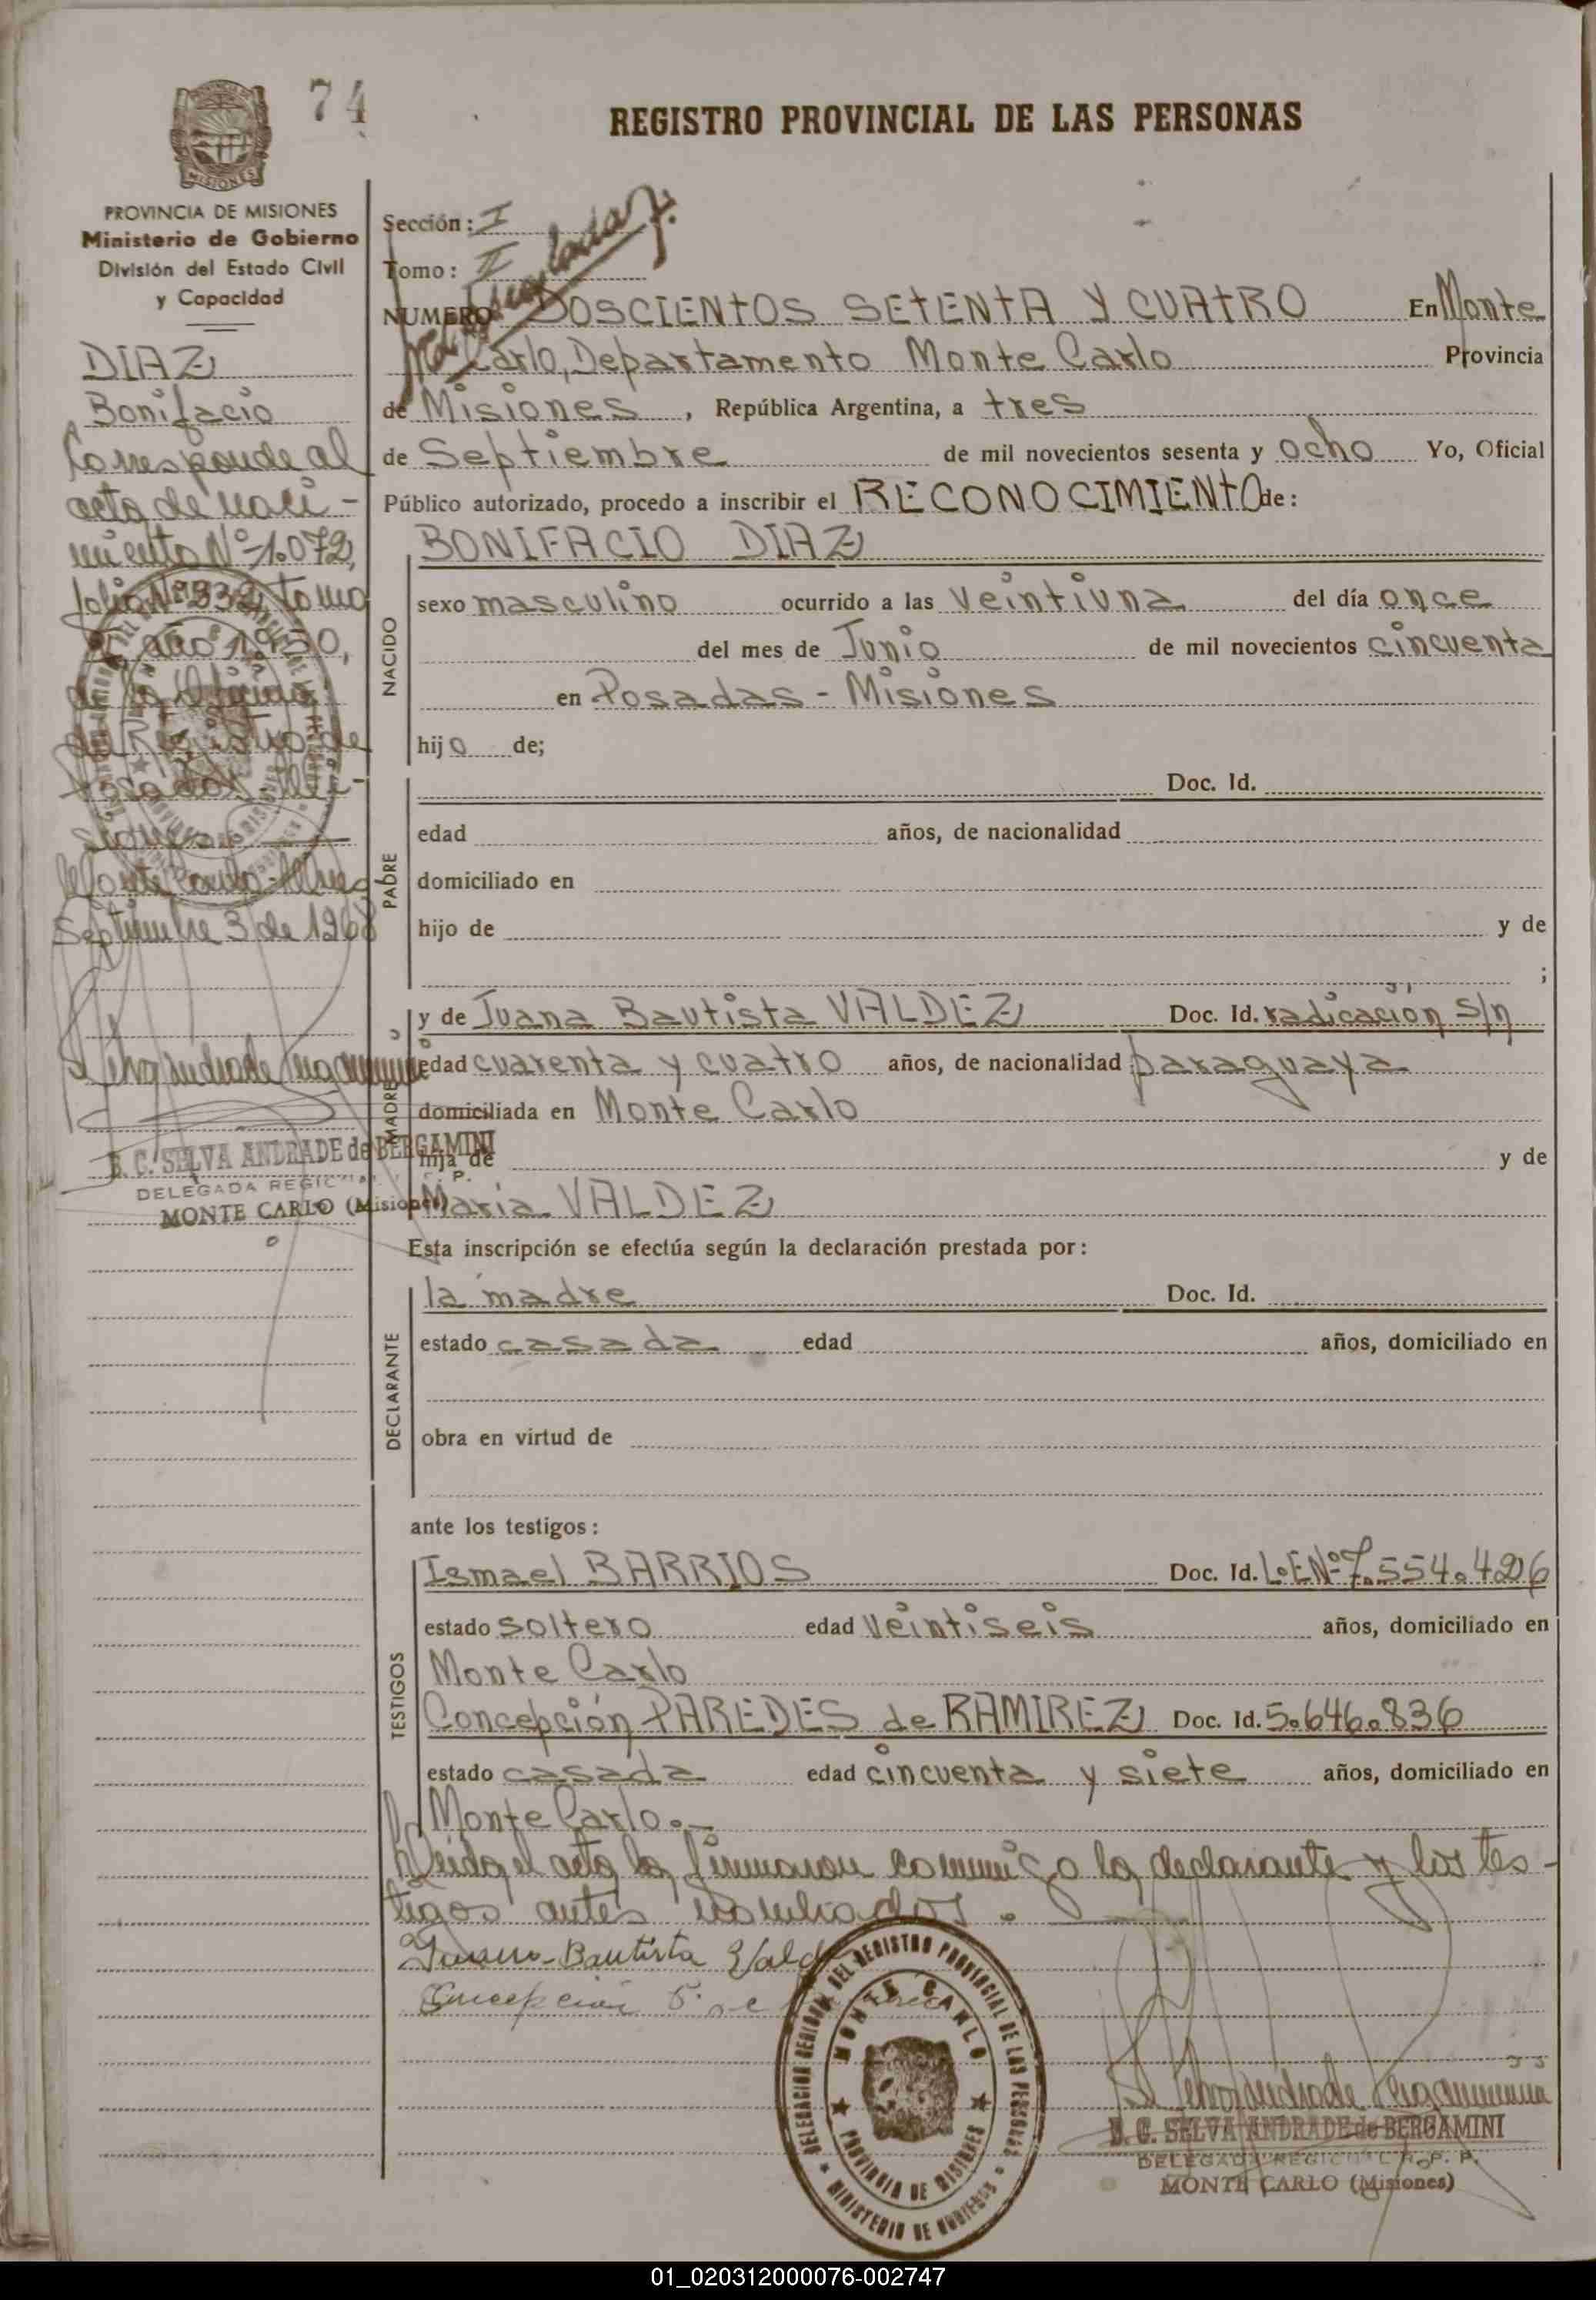 74
REGISTRO PROVINCIAL DE LAS PERSONAS
MISIONES
PROVINCIA DE MISIONES
Ministerio de Gobierno
División del Estado Civil
y Capacidad
DIAZ
Bonifacio
Corresponde al
acta de naci-
miento Nº 1.072,
folio Nº 332, tomo
año 1950,
de la Oficina
del Registro de
Posadas - Mi-
siones.
Monte Carlo - Mnes
Septiembre 3 de 1968
E. C. SELVA ANDRADE de BERGAMINI
DELEGADA REGIONAL R. P. P.
MONTE CARLO (Misiones)
Sección: I
Tomo: II
NUMERO DOSCIENTOS SETENTA Y CUATRO En Monte
Carlo, Departamento Monte Carlo Provincia
de Misiones, República Argentina, a tres
de Septiembre de mil novecientos sesenta y ocho Yo, Oficial
Público autorizado, procedo a inscribir el RECONOCIMIENTO de:
NACIDO
BONIFACIO DIAZ
sexo masculino ocurrido a las veintiuna del día once
del mes de Junio de mil novecientos cincuenta
en Posadas - Misiones
hijo de;
PADRE
Doc. Id.
edad años, de nacionalidad
domiciliado en
hijo de y de
;
MADRE
y de Juana Bautista VALDEZ Doc. Id. radicación s/n
edad cuarenta y cuatro años, de nacionalidad paraguaya
domiciliada en Monte Carlo
hija de y de
María VALDEZ
Esta inscripción se efectúa según la declaración prestada por:
DECLARANTE
la madre Doc. Id.
estado casada edad años, domiciliado en
obra en virtud de
ante los testigos:
TESTIGOS
Ismael BARRIOS Doc. Id. L.E.Nº 7.554.426
estado soltero edad veintiseis años, domiciliado en
Monte Carlo
Concepción PAREDES de RAMIREZ Doc. Id. 5.646.836
estado casada edad cincuenta y siete años, domiciliado en
Monte Carlo.-
Leida el acta la firmaron conmigo la declarante y los tes-
tigos antes nombrados.
Juana Bautista Vald
Concepcion P. de
DELEGACION REGIONAL DEL REGISTRO PROVINCIAL DE LAS PERSONAS
MONTE CARLO
PROVINCIA DE MISIONES
MINISTERIO DE GOBIERNO
E. C. SELVA ANDRADE de BERGAMINI
DELEGADA REGIONAL R. P. P.
MONTE CARLO (Misiones)
01_020312000076-002747